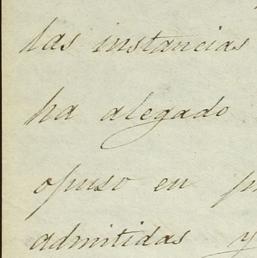 las instancias
ha alegado
opuso en
admitidas y